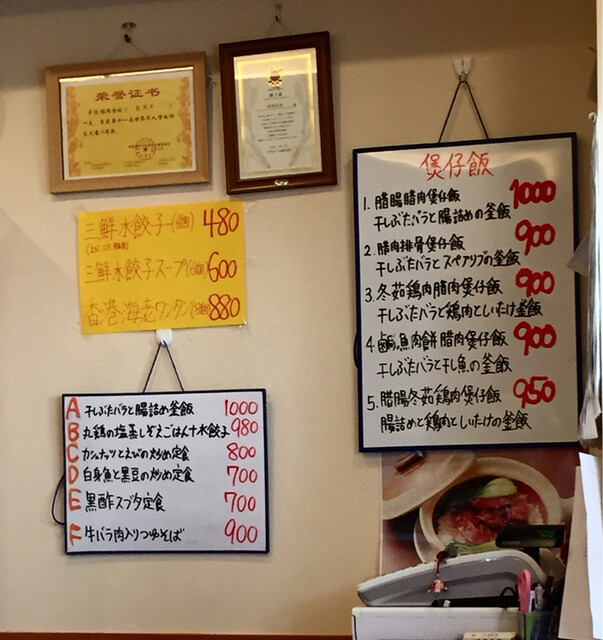 荣誉证书
三鮮水餃子(6個) 480
三鮮水餃子スープ(6個) 600
香港海老ワンタン(8個) 880
A 干しぶたバラと腸詰め釜飯 1000
B 丸鶏の塩蒸しぞえごはん+水餃子 980
C カシュナッツとえびの炒め定食 800
D 白身魚と黒豆の炒め定食 700
E 黒酢スブタ定食 700
F 牛バラ肉入りつゆそば 900
煲仔飯
1. 腊腸腊肉煲仔飯 1000
干しぶたバラと腸詰めの釜飯
2. 腊肉排骨煲仔飯 900
干しぶたバラとスペアリブの釜飯
3. 冬茹鶏肉腊肉煲仔飯 900
干しぶたバラと鶏肉としいたけ釜飯
4. 鹹魚肉餅腊肉煲仔飯 900
干しぶたバラと干し魚の釜飯
5. 腊腸冬茹鶏肉煲仔飯 950
腸詰めと鶏肉としいたけの釜飯